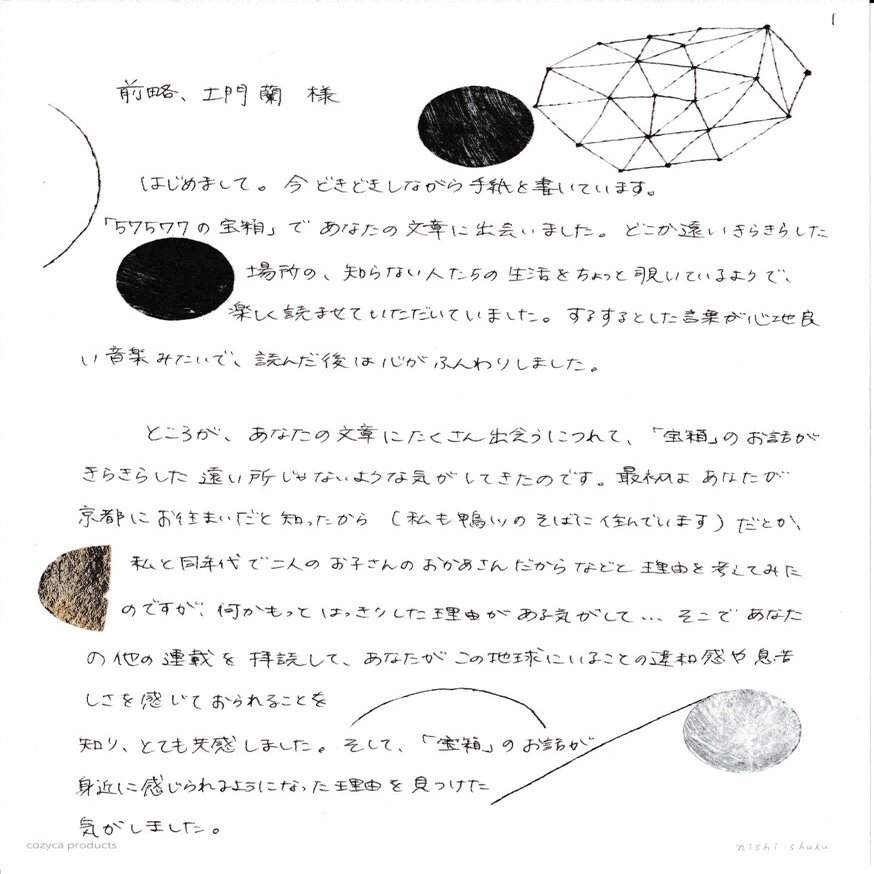 1
前略、土門蘭 様
はじめまして。今どきどきしながら手紙を書いています。
「57577の宝箱」であなたの文章に出会いました。どこか遠いきらきらした
場所の、知らない人たちの生活をちょっと覗いているようで、
楽しく読ませていただいていました。するするとした言葉が心地良
い音楽みたいで、読んだ後は心がふんわりしました。
ところが、あなたの文章にたくさん出会うにつれて、「宝箱」のお話が
きらきらした遠い所じゃないような気がしてきたのです。最初はあなたが
京都にお住まいだと知ったから(私も鴨川のそばに住んでいます)だとか、
私と同年代で二人のお子さんのおかあさんだからなどと理由を考えてみた
のですが、何かもっとはっきりした理由がある気がして…そこであなた
の他の連載を拝読して、あなたがこの地球にいることの違和感や息苦
しさを感じておられることを
知り、とても共感しました。そして、「宝箱」のお話が
身近に感じられるようになった理由を見つけた
気がしました。
cozyca products
nishi shuku